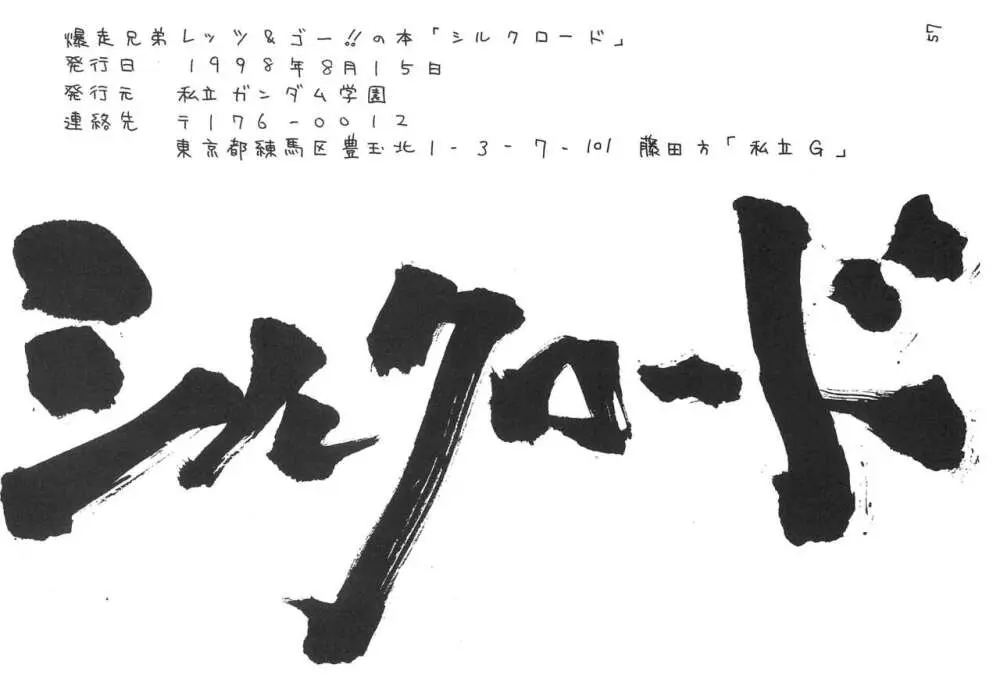 57
爆走兄弟レッツ&ゴー!!の本「シルクロード」
発行日 1998年8月15日
発行元 私立ガンダム学園
連絡先 〒176-0012
東京都練馬区豊玉北1-3-7-101 藤田方「私立G」
シルクロード